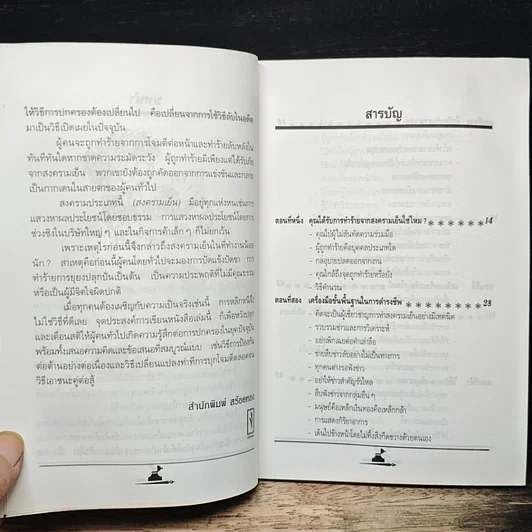 ให้วิธีการปกครองต้องเปลี่ยนไป คือเปลี่ยนจากการใช้วิธีลับในอดีต
มาเป็นวิธีเปิดเผยในปัจจุบัน
ผู้คนจะถูกทำร้ายจากการโจมตีต่อหน้าและทำร้ายลับหลังใน
ทันทีทันใดหากขาดความระมัดระวัง ผู้ถูกทำร้ายมิเพียงแต่ได้รับภัย
จากสงครามเย็น พวกเขายังต้องถูกคัดออกจากการแข่งขันและกลาย
เป็นกากเดนในสายตาของผู้คนทั่วไป
สงครามประเภทนี้ (สงครามเย็น) มีอยู่ทุกแห่งหนเช่นการ
แสวงหาผลประโยชน์โดยชอบธรรม การแสวงหาผลประโยชน์โดยการ
ช่วงชิงในบริษัทใหญ่ ๆ และในกิจการค้าเล็ก ๆ ก็ไม่ยกเว้น
เพราะเหตุไรก่อนนี้จึงกล่าวถึงสงครามเย็นในที่ทำงานน้อย
นัก ? สาเหตุคือก่อนนี้ผู้คนโดยทั่วไปจะมองการปัดแข้งปัดขา การ
ทำร้ายการยุยงปลุกปั่นเป็นต้น เป็นความประพฤติที่ไม่มีคุณธรรม
หรือเป็นผู้มีจิตใจผิดปกติ
เมื่อทุกคนต้องเผชิญกับความเป็นจริงเช่นนี้ การหลีกหนีจึง
ไม่ใช่วิธีที่ดีเลย จุดประสงค์การเขียนหนังสือเล่มนี้ ก็เพื่อหวังปลุก
และเตือนสติให้ผู้คนทั่วไปเกิดความรู้สึกต่อการปกครองในยุคปัจจุบัน
พร้อมทั้งเสนอความคิดและข้อเสนอที่สมบูรณ์แบบ เช่นวิธีการป้องกัน
ต่อต้านอย่างต่อเนื่องและวิธีเปลี่ยนแปลงท่าทีการบุกโจมตีตลอดจน
วิธีเอาชนะคู่ต่อสู้
สำนักพิมพ์ สร้อยทอง
สารบัญ
ตอนที่หนึ่ง คุณได้รับการทำร้ายจากสงครามเย็นใช่ไหม ? 14
- คุณไปผู้ไม่สันทัดความร่วมมือ
- ผู้ถูกทำร้ายคือบุคคลประเภทใด
- กลอุบายปลดออกจากงาน
- คุณใกล้ถึงจุดถูกทำร้ายหรือยัง
- วิธีคำนวณ
ตอนที่สอง เครื่องมือขั้นพื้นฐานในการดำรงชีพ 28
- คิดจะเป็นผู้เชี่ยวชาญการทำสงครามเย็นอย่างมีเทคนิค
- รวบรวมข่าวและการวิเคราะห์
- อย่าพิกเฉยต่อคำเล่าลือ
- ข่ายสืบข่าวลับอย่างไม่เป็นทางการ
- ทุกคนต่างรอฟังข่าว
- อย่าให้ข่าวสำคัญรั่วไหล
- สืบฟังข่าวจากกลุ่มอื่น ๆ
- มนุษย์คือเหล็กเงินทองคือเหล็กกล้า
- การแสดงกิริยาอาการ
- เดินไปข้างหน้าโดยไม่ทิ้งสิ่งกีดขวางด้วยตนเอง